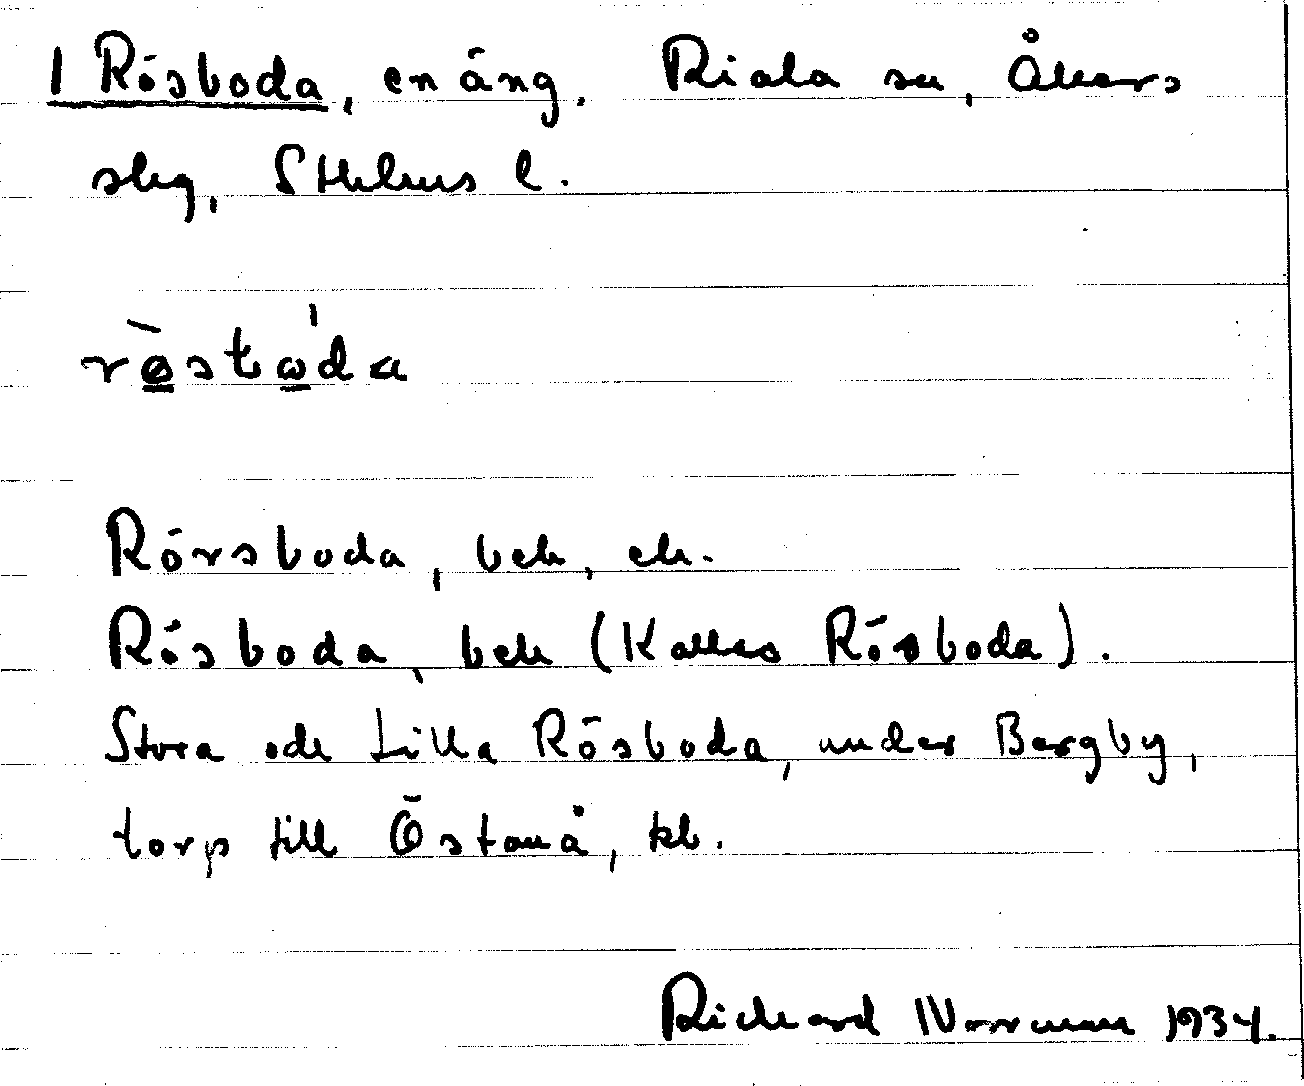 1 Rösboda, en äng. Riala sn, Åkers
skg, Sthlms l.
rø̀stω'da
Rörsboda, bek, ek.
Rösboda, bek (Kallas Rösboda).
Stora och Lilla Rösboda, under Bergby,
torp till Östanå, kb.
Richard Norrman 1934.